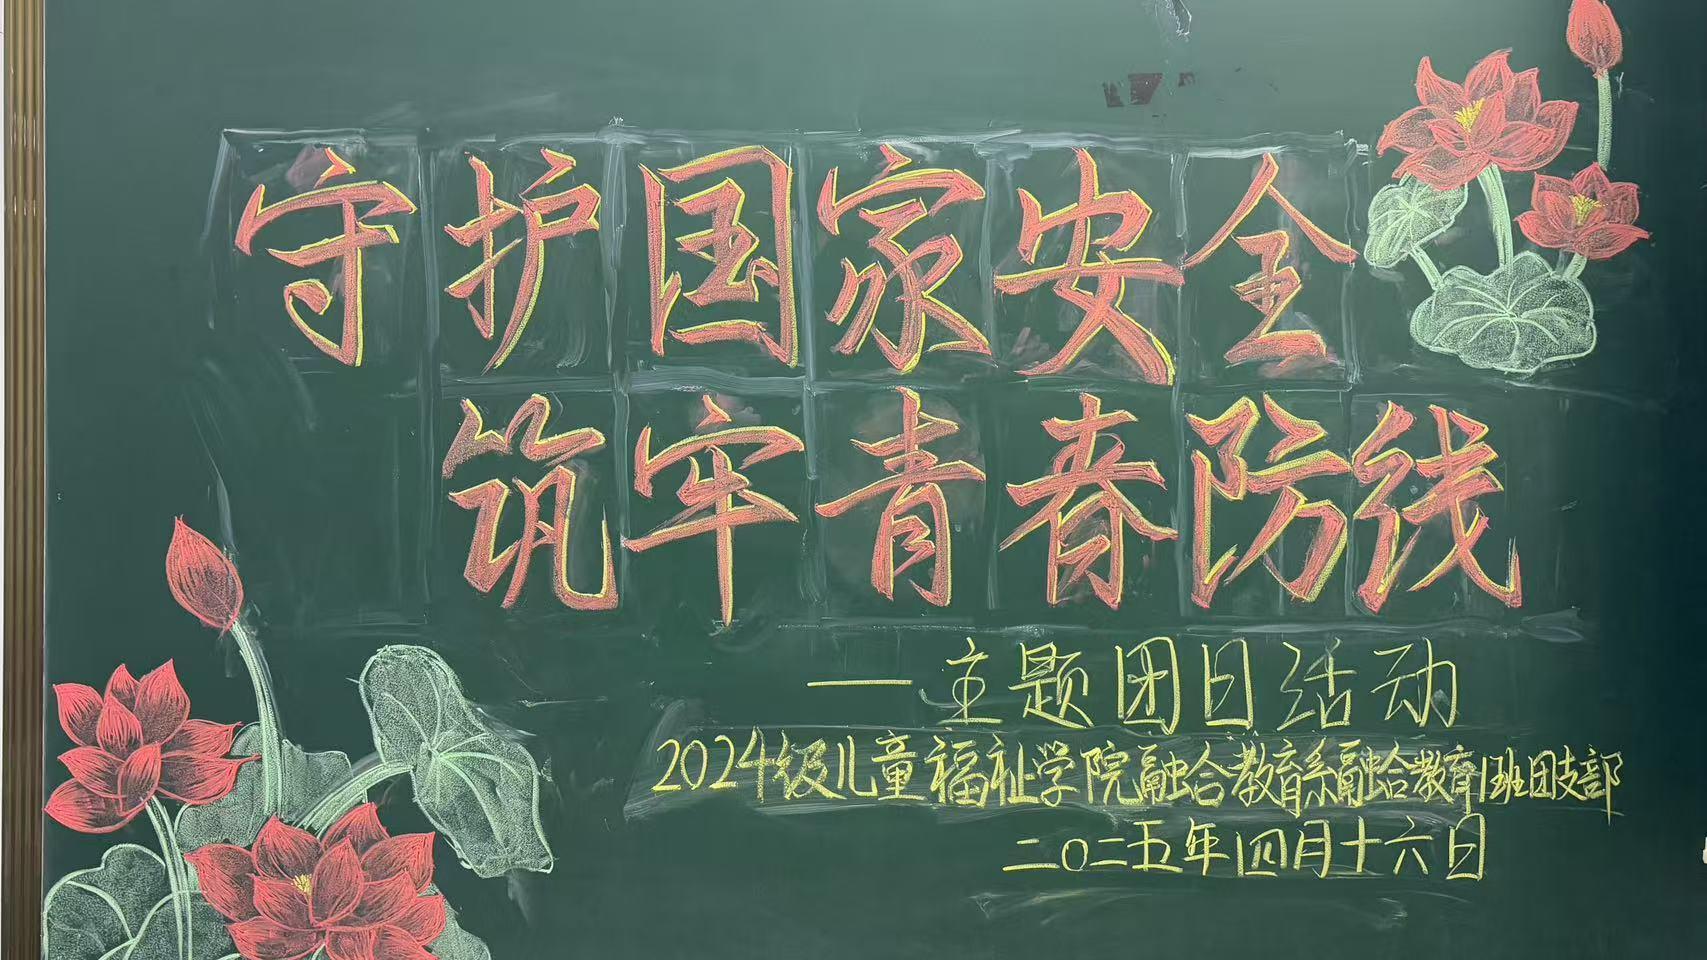 守护国家安全
筑牢青春防线
——主题团日活动
2024级儿童福祉学院融合教育系融合教育1班团支部
二〇二五年四月十六日